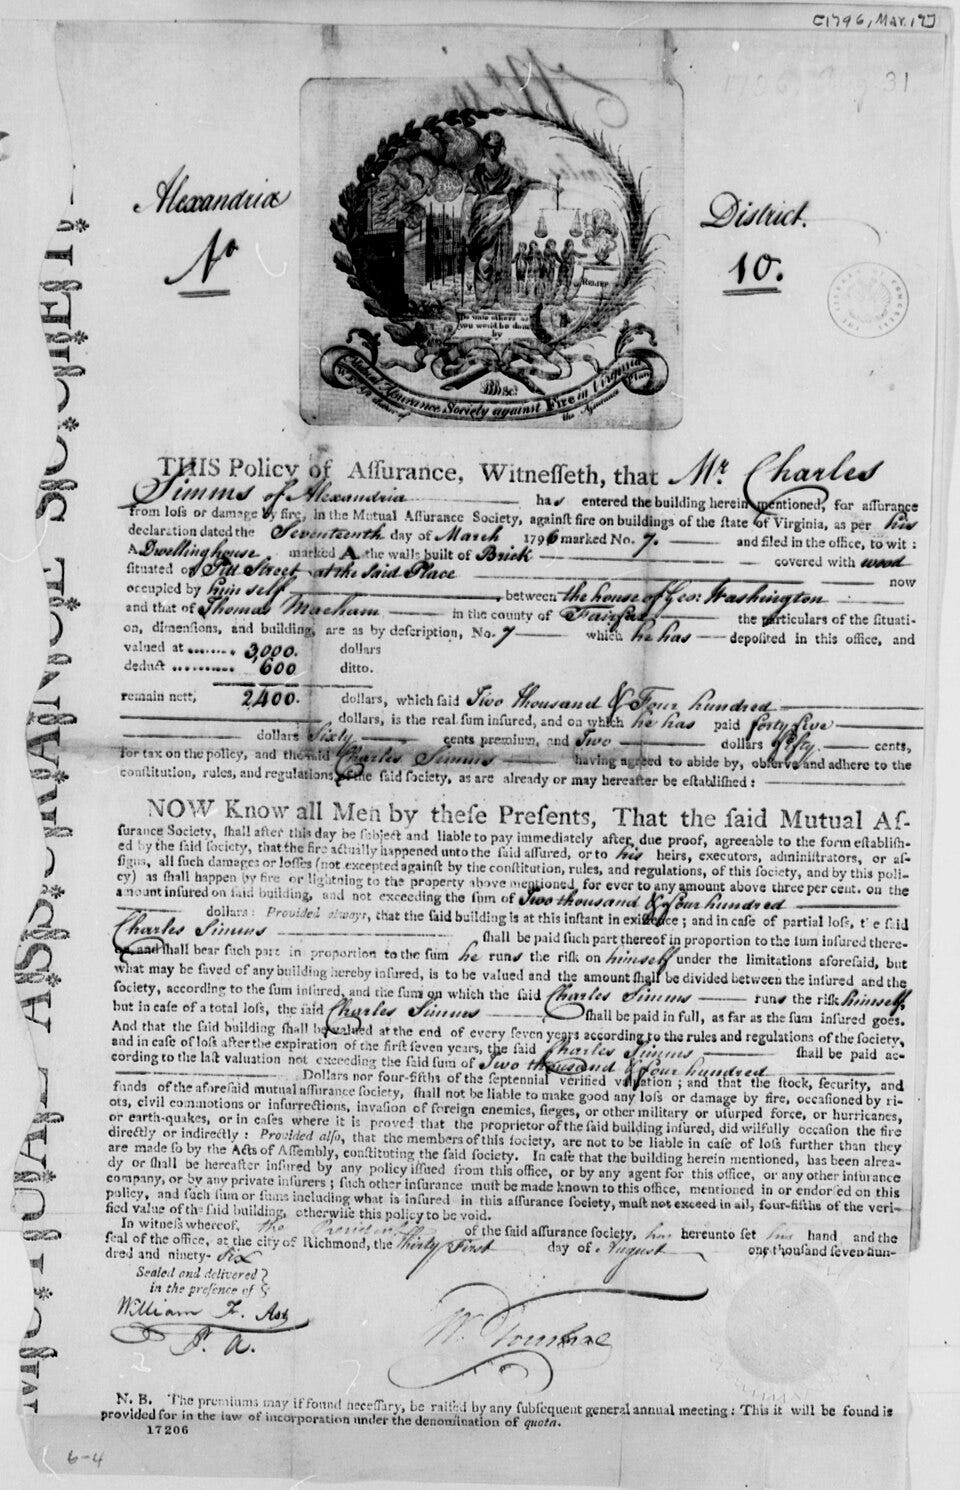 [1796, Mar. 17]
1796, Aug 31
Alexandria District.
No 10.
THE LIBRARY OF CONGRESS
RELIEF
Do unto others as
you would be done
by
Mutual Assurance Society against Fire in Virginia
MUTUAL ASSURANCE SOCIETY.
THIS Policy of Aſſurance, Witneſſeth, that Mr. Charles
Simms of Alexandria has entered the building herein mentioned, for aſſurance
from loſs or damage by fire, in the Mutual Aſſurance Society, againſt fire on buildings of the ſtate of Virginia, as per his
declaration dated the Seventeenth day of March 1796 marked No. 7. and filed in the office, to wit:
A Dwelling house marked A the walls built of Brick covered with wood
ſituated on Pitt Street at the Said Place now
occupied by himself between the house of Geo: Washington
and that of Thomas Macham in the county of Fairfax the particulars of the ſituati-
on, dimenſions, and building, are as by deſcription, No. 7 which he has depoſited in this office, and
valued at ........ 3,000. dollars
deduct .......... 600 ditto.
remain nett, 2400. dollars, which ſaid Two thousand & Four hundred
dollars, is the real ſum inſured, and on which he has paid forty five
dollars Sixty cents premium, and Two dollars fifty cents,
for tax on the policy, and the ſaid Charles Simms having agreed to abide by, obſerve and adhere to the
conſtitution, rules, and regulations of the ſaid ſociety, as are already or may hereafter be eſtabliſhed:
NOW Know all Men by theſe Preſents, That the ſaid Mutual Aſ-
ſurance Society, ſhall after this day be ſubject and liable to pay immediately after due proof, agreeable to the form eſtabliſh-
ed by the ſaid ſociety, that the fire actually happened unto the ſaid aſſured, or to his heirs, executors, adminiſtrators, or aſ-
ſigns, all ſuch damages or loſſes (not excepted againſt by the conſtitution, rules, and regulations, of this ſociety, and by this poli-
cy) as ſhall happen by fire or lightning to the property above mentioned, for ever to any amount above three per cent. on the
amount inſured on ſaid building, and not exceeding the ſum of Two thousand & four hundred
dollars: Provided always, that the ſaid building is at this inſtant in exiſtence; and in caſe of partial loſs, the ſaid
Charles Simms ſhall be paid ſuch part thereof in proportion to the ſum inſured there-
on, and ſhall bear ſuch part in proportion to the ſum he runs the riſk on himself under the limitations aforeſaid, but
what may be ſaved of any building hereby inſured, is to be valued and the amount ſhall be divided between the inſured and the
ſociety, according to the ſum inſured, and the ſum on which the ſaid Charles Simms runs the riſk himself
but in caſe of a total loſs, the ſaid Charles Simms ſhall be paid in full, as far as the ſum inſured goes.
And that the ſaid building ſhall be valued at the end of every ſeven years according to the rules and regulations of the ſociety,
and in caſe of loſs after the expiration of the firſt ſeven years, the ſaid Charles Simms ſhall be paid ac-
cording to the laſt valuation not exceeding the ſaid ſum of Two thousand & four hundred
Dollars nor four-fifths of the ſeptennial verified valuation; and that the ſtock, ſecurity, and
funds of the aforeſaid mutual aſſurance ſociety, ſhall not be liable to make good any loſs or damage by fire, occaſioned by ri-
ots, civil commotions or inſurrections, invaſion of foreign enemies, ſieges, or other military or uſurped force, or hurricanes,
or earth-quakes, or in caſes where it is proved that the proprietor of the ſaid building inſured, did wilfully occaſion the fire
directly or indirectly: Provided alſo, that the members of this ſociety, are not to be liable in caſe of loſs further than they
are made ſo by the Acts of Aſſembly, conſtituting the ſaid ſociety. In caſe that the building herein mentioned, has been alrea-
dy or ſhall be hereafter inſured by any policy iſſued from this office, or by any agent for this office, or any other inſurance
company, or by any private inſurers; ſuch other inſurance muſt be made known to this office, mentioned in or endorſed on this
policy, and ſuch ſum or ſums including what is inſured in this aſſurance ſociety, muſt not exceed in all, four-fifths of the veri-
fied value of the ſaid building, otherwiſe this policy to be void.
In witneſs whereof, the President of the ſaid aſſurance ſociety, has hereunto ſet his hand and the
ſeal of the office, at the city of Richmond, the Thirty First day of August one thouſand ſeven hun-
dred and ninety- Six
Sealed and delivered
in the preſence of
William F. Ast
P. A.
N. B. The premiums may if found neceſſary, be raiſed by any ſubſequent general annual meeting: This it will be found is
provided for in the law of incorporation under the denomination of quota.
17206
6-4